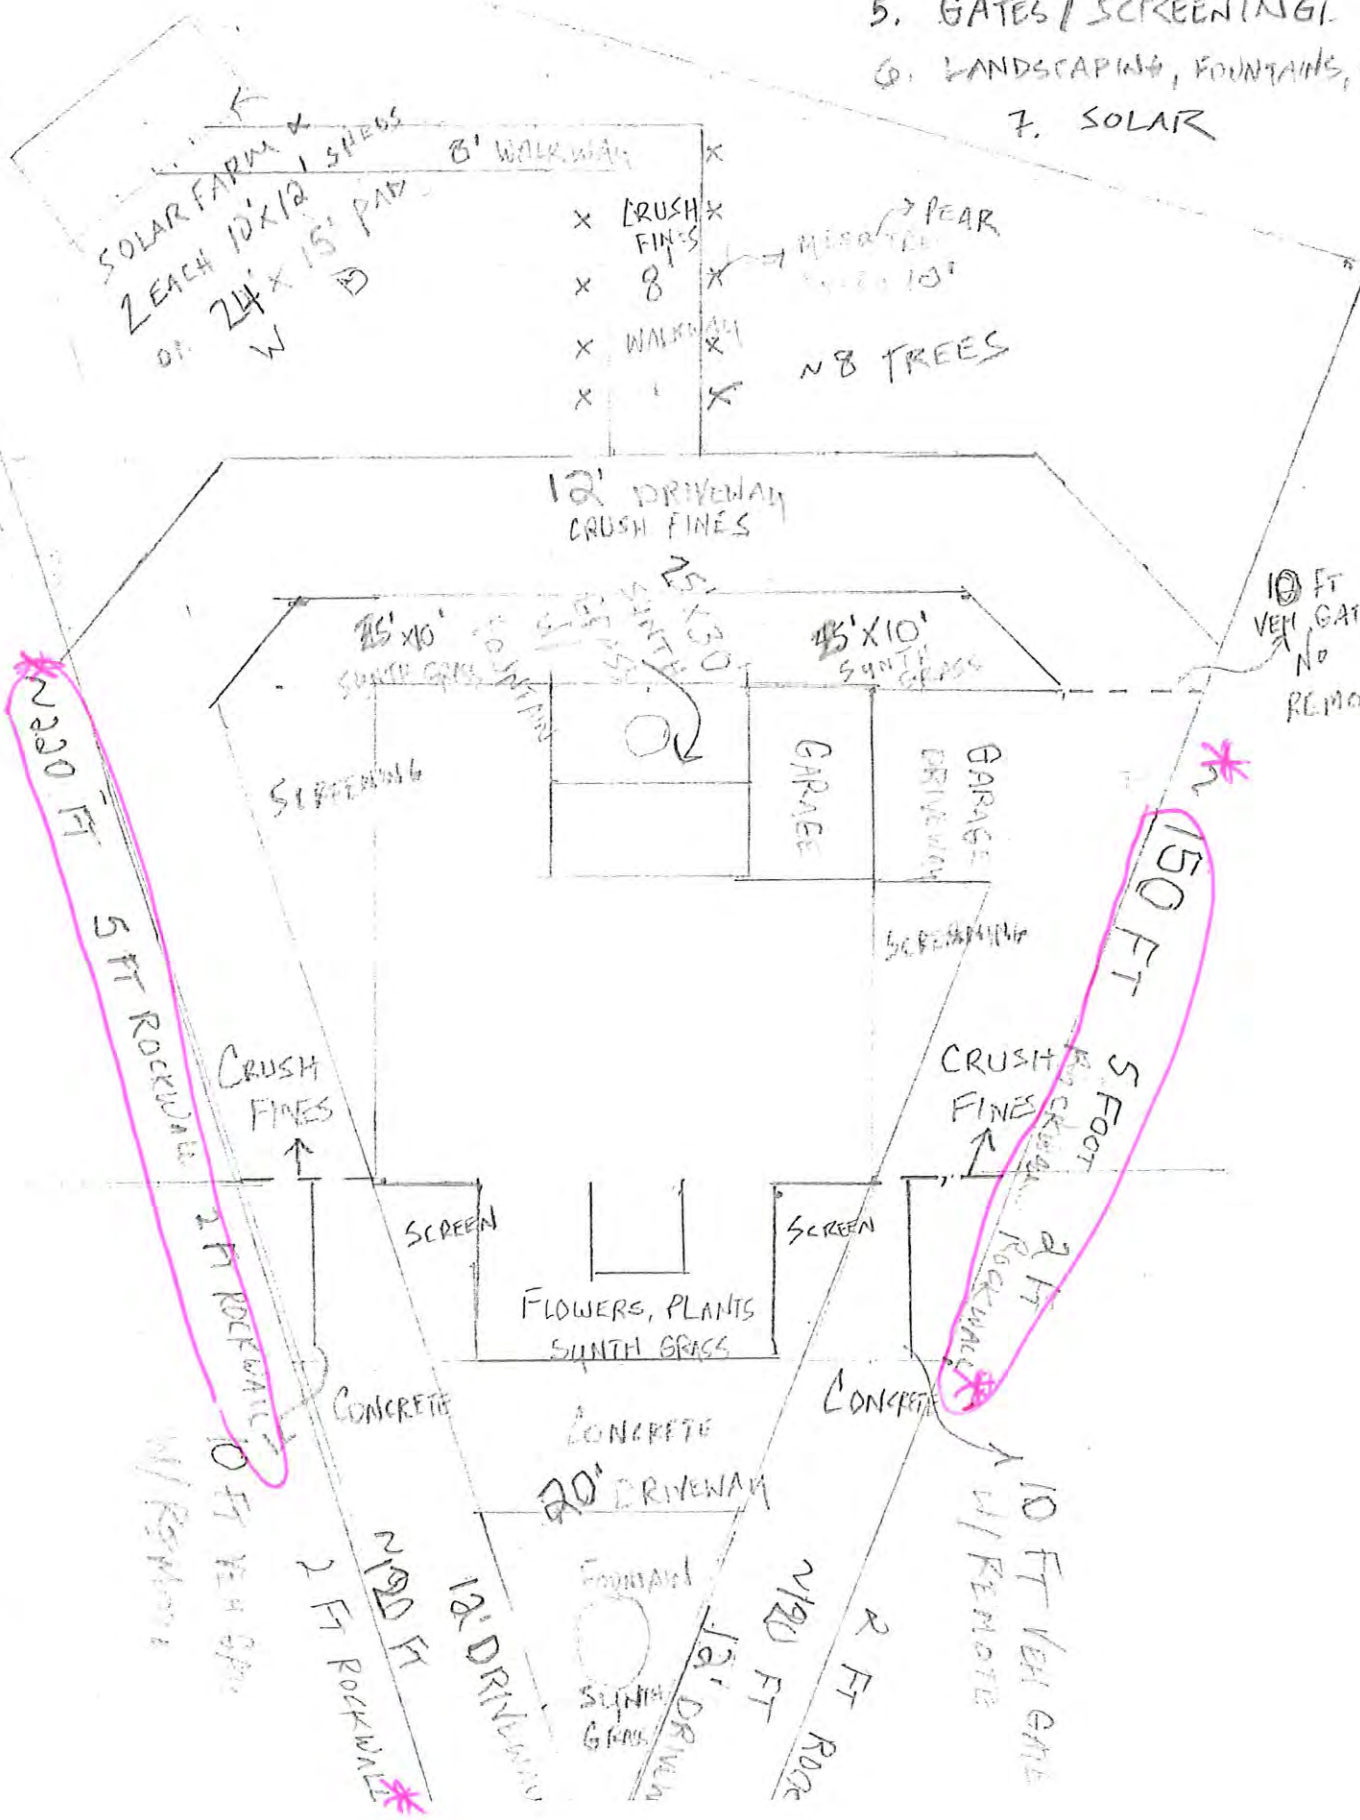 5. GATES / SCREENING/.
6. LANDSCAPING, FOUNTAINS,
7. SOLAR
SOLAR FARM
2 EACH 10'X12' SHEDS
OR 24' X 15' PAD
W D
8' WALKWAY
CRUSH
FINES
8
WALKWAY
PEAR
~8 TREES
12' DRIVEWAY
CRUSH FINES
25'X30'
SYNTH
GRASS
FOUNTAIN
25'X10'
SYNTH GRASS
25'X10'
SYNTH
GRASS
10 FT
VEH GAT
NO
REMO
SCREENING
GARAGE
GARAGE
DRIVEWAY
SCREENING
~220 FT 5 FT ROCKWALL 2 FT ROCKWALL
~150 FT 5 FOOT
ROCKWALL 2 FT
ROCKWALL
CRUSH
FINES
CRUSH
FINES
SCREEN
SCREEN
FLOWERS, PLANTS
SYNTH GRASS
CONCRETE
CONCRETE
CONCRETE
20' DRIVEWAY
10 FT VEH GATE
W/ REMOTE
10 FT VEH GATE
W/ REMOTE
FOUNTAIN
SYNTH
GRASS
12' DRIVEWAY
~190 FT
2 FT ROCKWALL
12' DRIVEW
~190 FT
2 FT ROCK